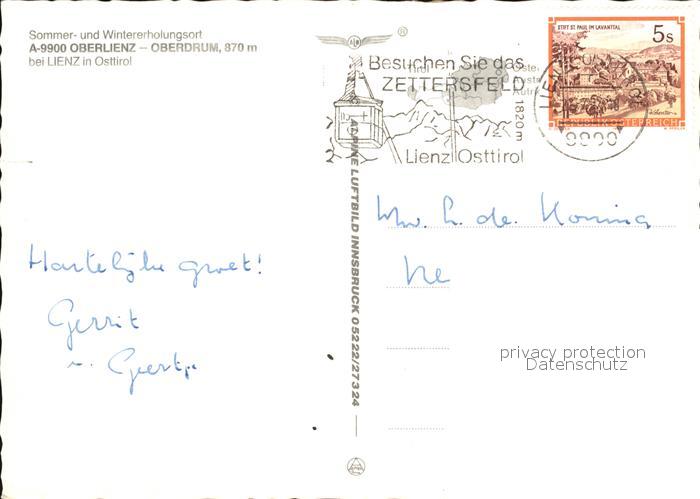 Sommer- und Wintererholungsort
A-9900 OBERLIENZ – OBERDRUM, 870 m
bei LIENZ in Osttirol
®
Besuchen Sie das
ZETTERSFELD
1820m
Lienz Osttirol
Tirol
STIFT ST. PAUL IM LAVANTTAL
5s
REPUBLIK ÖSTERREICH
9900
ALPINE LUFTBILD INNSBRUCK 05222/27324
Hartelijke groet!
Gerrit
Mw. L. de Koning
privacy protection
Datenschutz